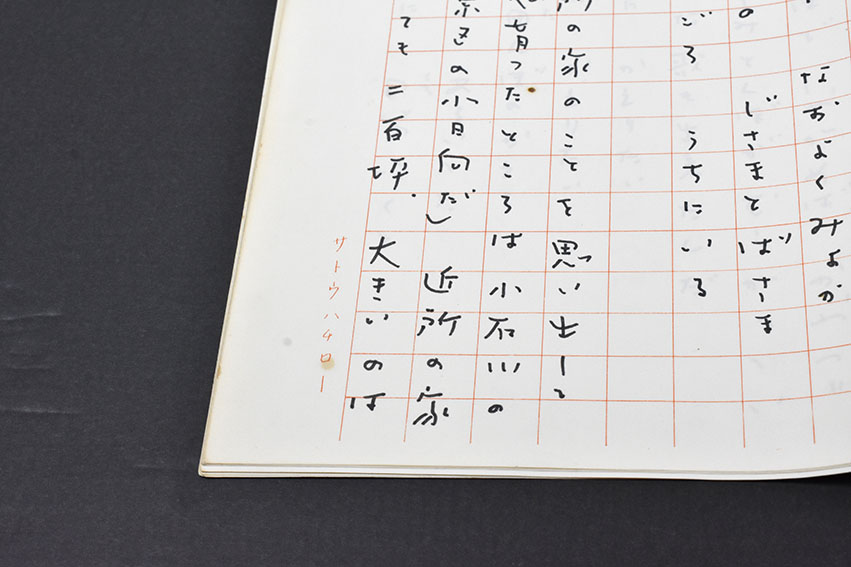 なおよくみよか
の　じさまとばさま
ごろ　うちにいる
の家のことを思い出して
育ったところは小石川の
区の小日向だ）　近所の家
ても二百坪.　大きいのは
サトウハチロー